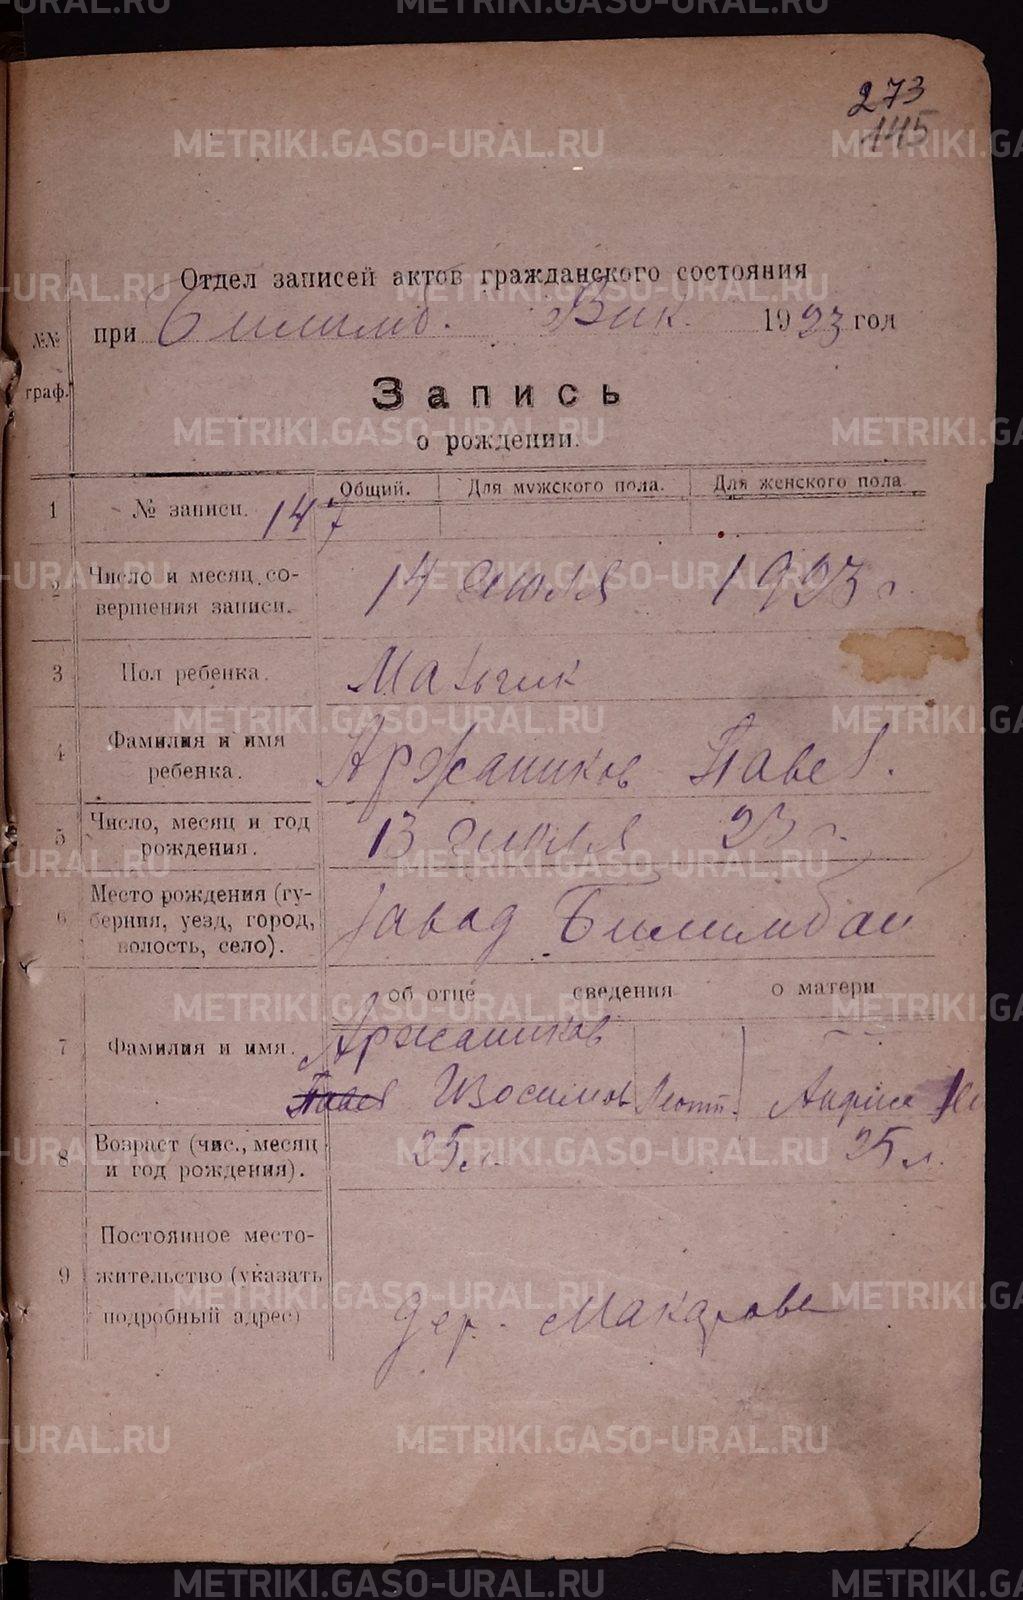 273
145
Отдел записей актов гражданского состояния
при Билимб. Вик. 1923 год
№№ граф.
Запись
о рождении.
Общий. Для мужского пола. Для женского пола
1 № записи. 147
2 Число и месяц совершения записи. 14 июля 1923 г.
3 Пол ребенка. Мальчик
4 Фамилия и имя ребенка. Аржанников Павел.
5 Число, месяц и год рождения. 13 июля 23 г.
6 Место рождения (губерния, уезд, город, волость, село). Завод Билимбай
об отце сведения о матери
7 Фамилия и имя. Аржанников
Павел
8 Возраст (чис., месяц и год рождения). 25 л. 25 л.
9 Постоянное местожительство (указать подробный адрес)
дер. Макарова
METRIKI.GASO-URAL.RU